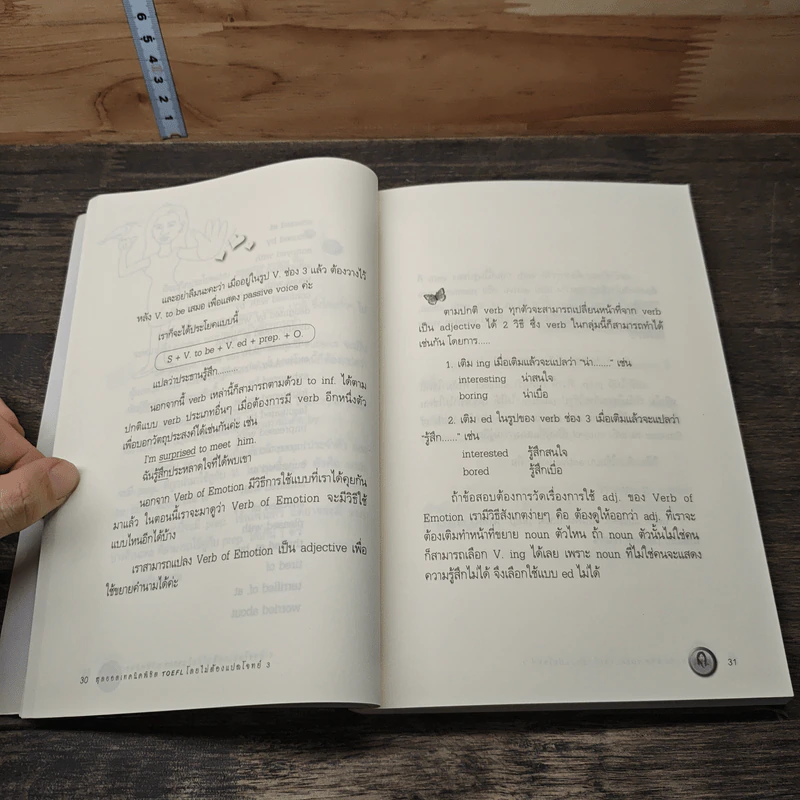 และอย่าลืมนะคะว่า เมื่ออยู่ในรูป V. ช่อง 3 แล้ว ต้องวางไว้
หลัง V. to be เสมอ เพื่อแสดง passive voice ค่ะ
เราก็จะได้ประโยคแบบนี้
S + V. to be + V. ed + prep. + O.
แปลว่าประธานรู้สึก........
นอกจากนี้ verb เหล่านี้ก็สามารถตามด้วย to inf. ได้ตาม
ปกติแบบ verb ประเภทอื่นๆ เมื่อต้องการมี verb อีกหนึ่งตัว
เพื่อบอกวัตถุประสงค์ได้เช่นกันค่ะ เช่น
I'm surprised to meet him.
ฉันรู้สึกประหลาดใจที่ได้พบเขา
นอกจาก Verb of Emotion มีวิธีการใช้แบบที่เราได้คุยกัน
มาแล้ว ในตอนนี้เราจะมาดูว่า Verb of Emotion จะมีวิธีใช้
แบบไหนอีกได้บ้าง
เราสามารถแปลง Verb of Emotion เป็น adjective เพื่อ
ใช้ขยายคำนามได้ค่ะ
30 สุดยอดเทคนิคพิชิต TOEFL โดยไม่ต้องแปลโจทย์ 3
ตามปกติ verb ทุกตัวจะสามารถเปลี่ยนหน้าที่จาก verb
เป็น adjective ได้ 2 วิธี ซึ่ง verb ในกลุ่มนี้ก็สามารถทำได้
เช่นกัน โดยการ.....
1. เติม ing เมื่อเติมแล้วจะแปลว่า "น่า......." เช่น
interesting น่าสนใจ
boring น่าเบื่อ
2. เติม ed ในรูปของ verb ช่อง 3 เมื่อเติมแล้วจะแปลว่า
"รู้สึก......" เช่น
interested รู้สึกสนใจ
bored รู้สึกเบื่อ
ถ้าข้อสอบต้องการวัดเรื่องการใช้ adj. ของ Verb of
Emotion เรามีวิธีสังเกตง่ายๆ คือ ต้องดูให้ออกว่า adj. ที่เราจะ
ต้องเติมทำหน้าที่ขยาย noun ตัวไหน ถ้า noun ตัวนั้นไม่ใช่คน
ก็สามารถเลือก V. ing ได้เลย เพราะ noun ที่ไม่ใช่คนจะแสดง
ความรู้สึกไม่ได้ จึงเลือกใช้แบบ ed ไม่ได้
31
6
5
4
3
2
1